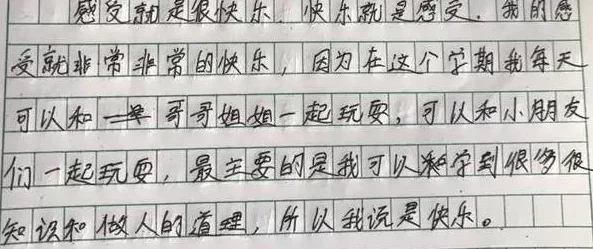 感受就是很快乐，快乐就是感受．我的感
受就非常非常的快乐，因为在这个学期我每天
可以和哥哥姐姐一起玩耍，可以和小朋友
们一起玩耍，最主要的是我可以学到很多很
知识和做人的道理，所以我说是快乐。